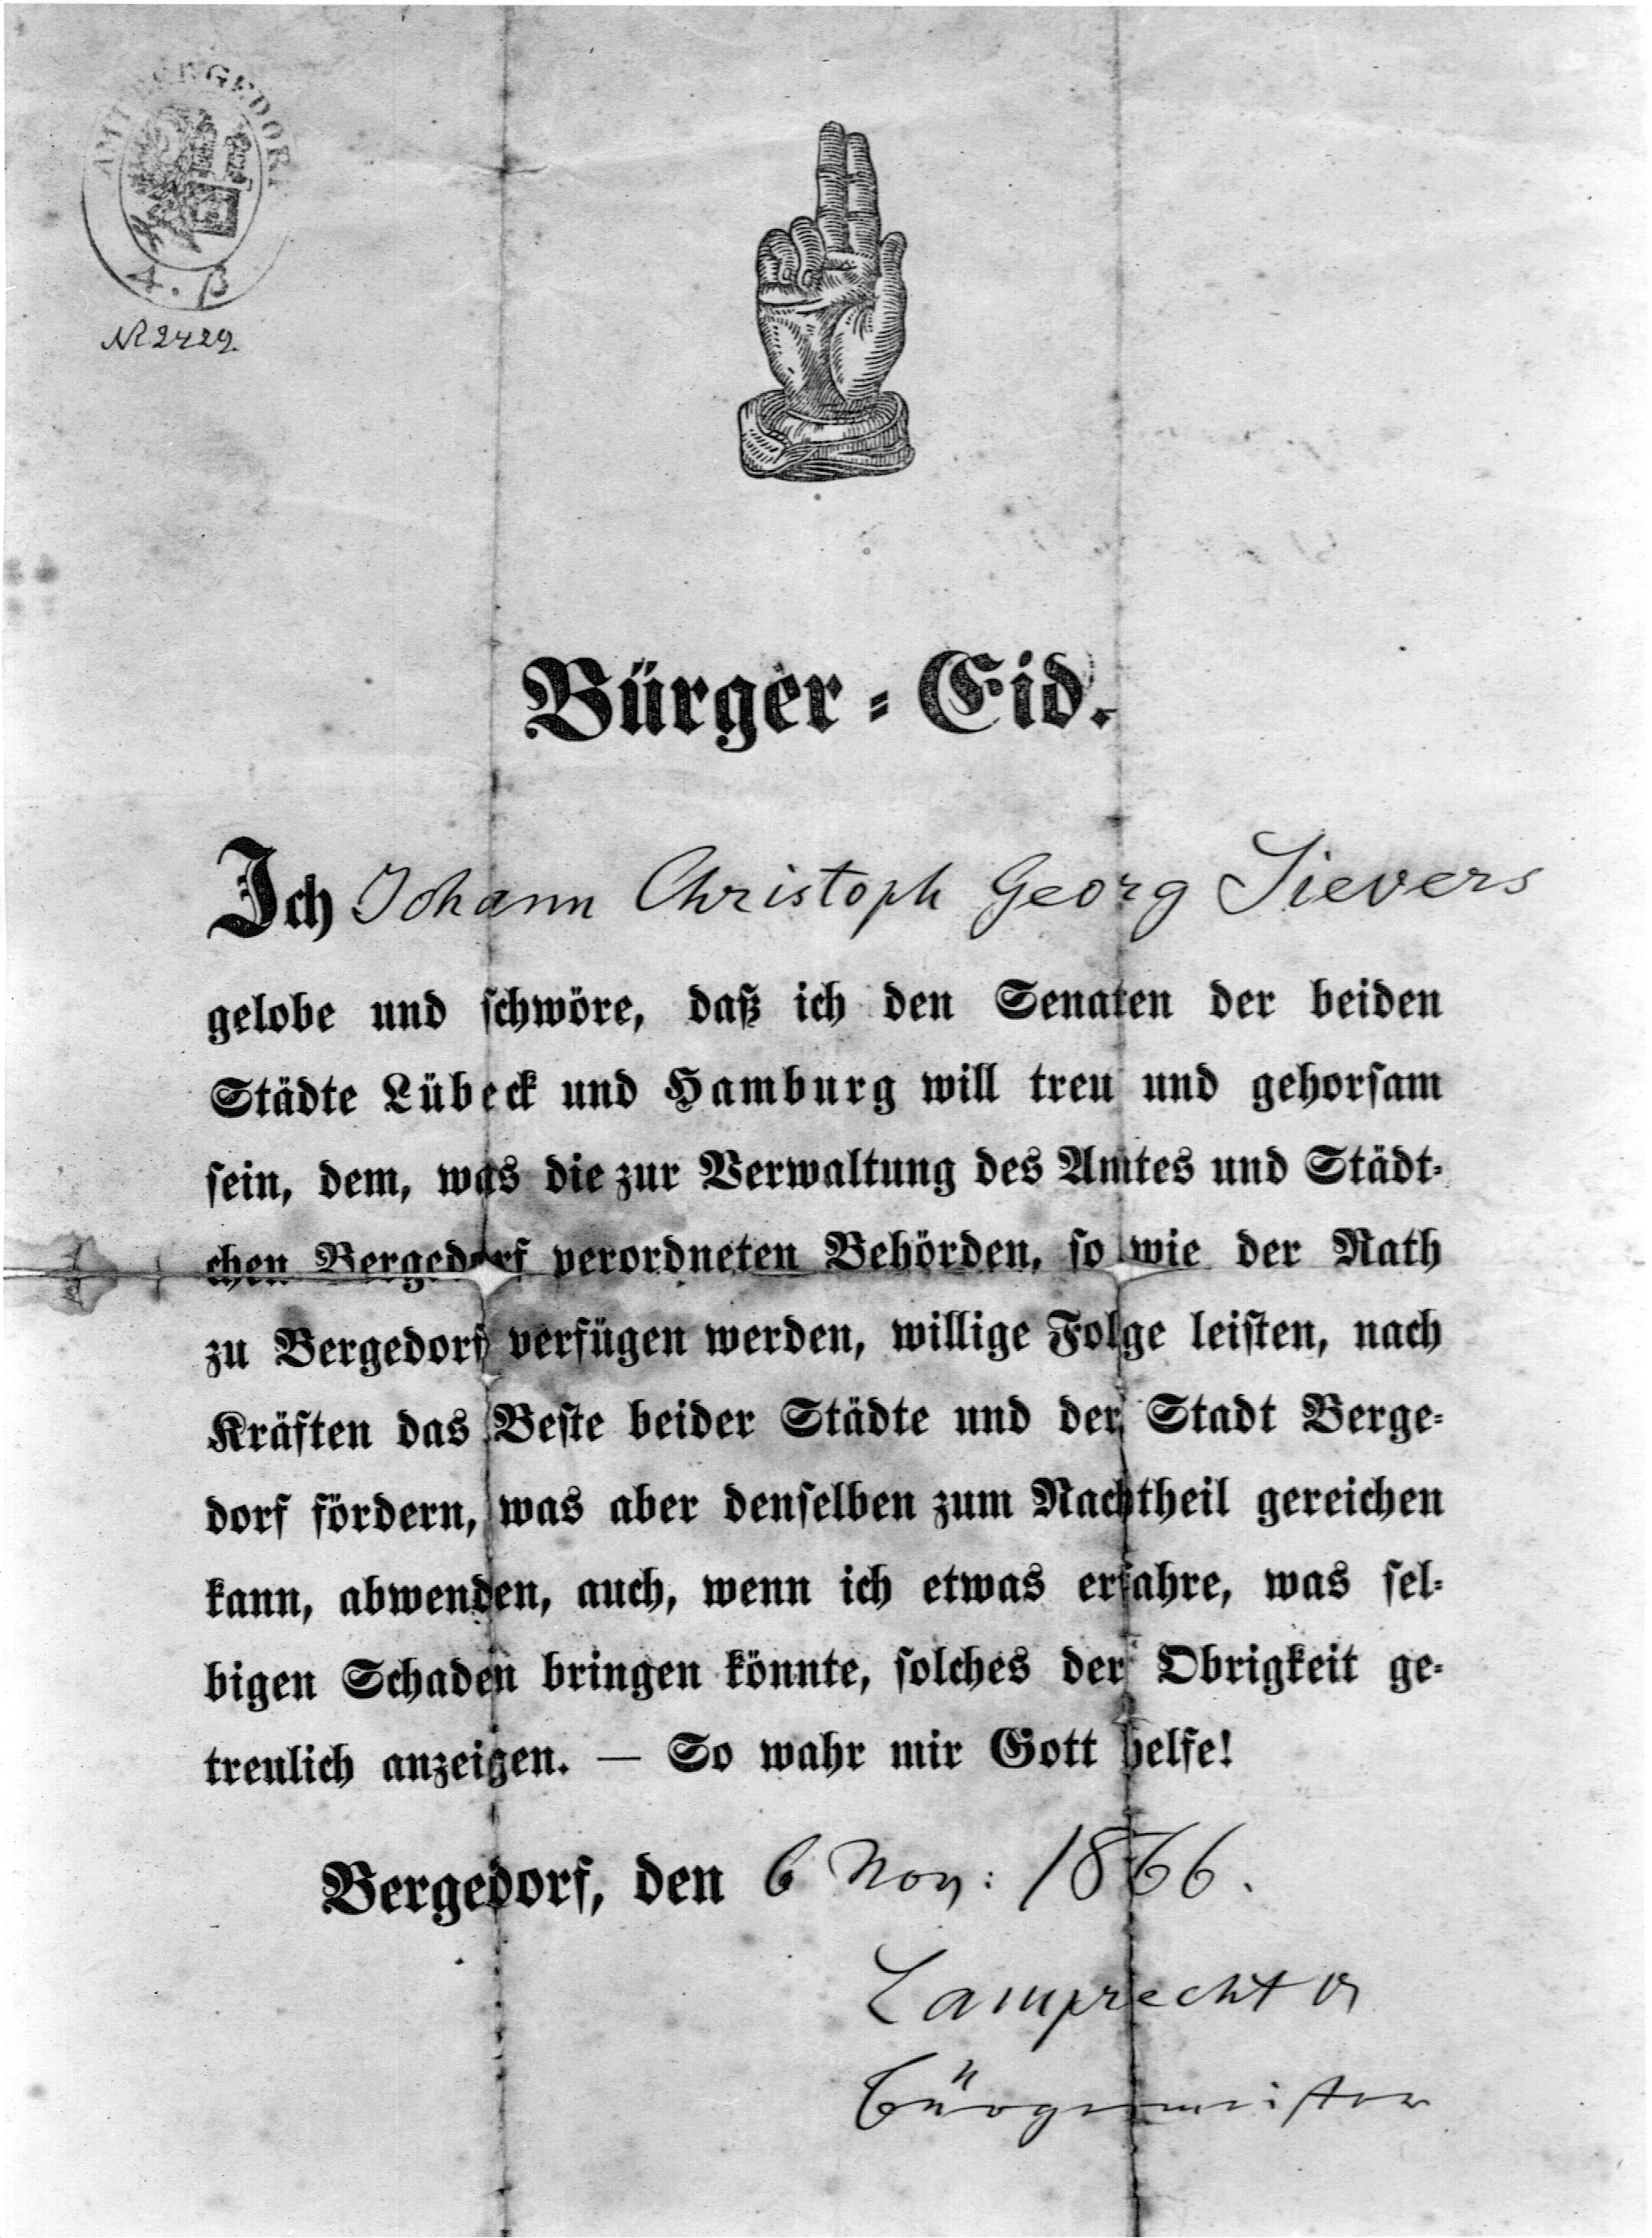 AMT BERGEDORF
4. β
N 2429.
Bürger-Eid.
Ich Johann Christoph Georg Sievers
gelobe und schwöre, daß ich den Senaten der beiden
Städte Lübeck und Hamburg will treu und gehorsam
sein, dem, was die zur Verwaltung des Amtes und Städt-
chen Bergedorf verordneten Behörden, so wie der Rath
zu Bergedorf verfügen werden, willige Folge leisten, nach
Kräften das Beste beider Städte und der Stadt Berge-
dorf fördern, was aber denselben zum Nachtheil gereichen
kann, abwenden, auch, wenn ich etwas erfahre, was sel-
bigen Schaden bringen könnte, solches der Obrigkeit ge-
treulich anzeigen. — So wahr mir Gott helfe!
Bergedorf, den 6 Nov: 1866.
Lamprecht
Bürgermeister